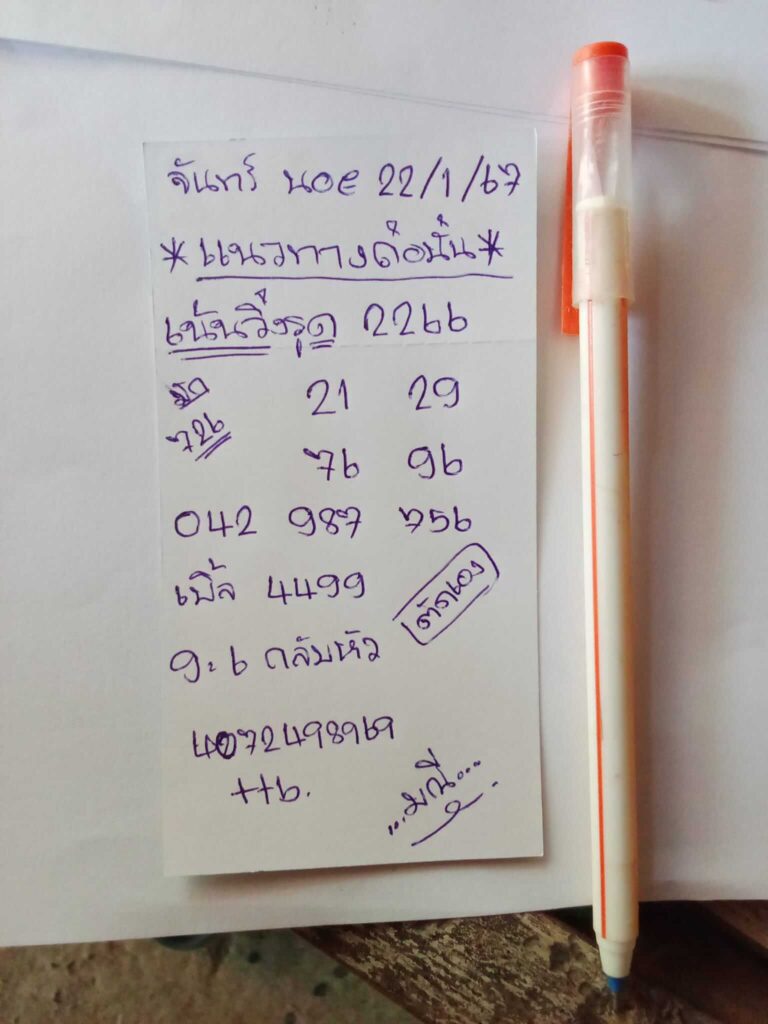 จันทร์ นอย 22/1/67
*แนวทางต่อนั้น*
เน้นวิ่งรูด 2266
21 29
726
76 96
042 987 756
เบิ้ล 4499
ตัดเอง
9:6 กลับหัว
4072498969
++6.
...มณี...